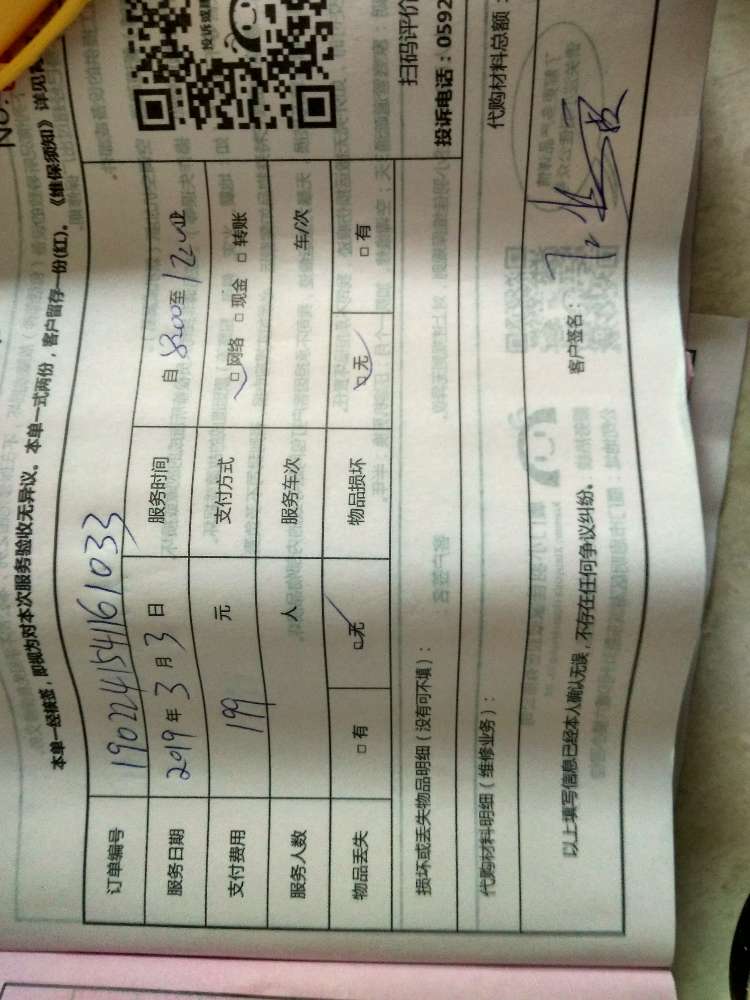 NO.
本单一经接签，即视为对本次服务验收无异议。本单一式两份，客户留存一份(红)。《维保须知》详见
订单编号 190224154161033
服务日期 2019 年 3 月 3 日 服务时间 自 8:00 至 12:00止
支付费用 199 元 支付方式 □ 网络 □ 现金 □ 转账
服务人数 人 服务车次 车/次
物品丢失 □ 有 □ 无 物品损坏 □ 无 □ 有
损坏或丢失物品明细（没有可不填）：
扫码评价
投诉电话：0592
代购材料明细（维修业务）：
代购材料总额：
以上填写信息已经本人确认无误，不存在任何争议纠纷。
客户签名：